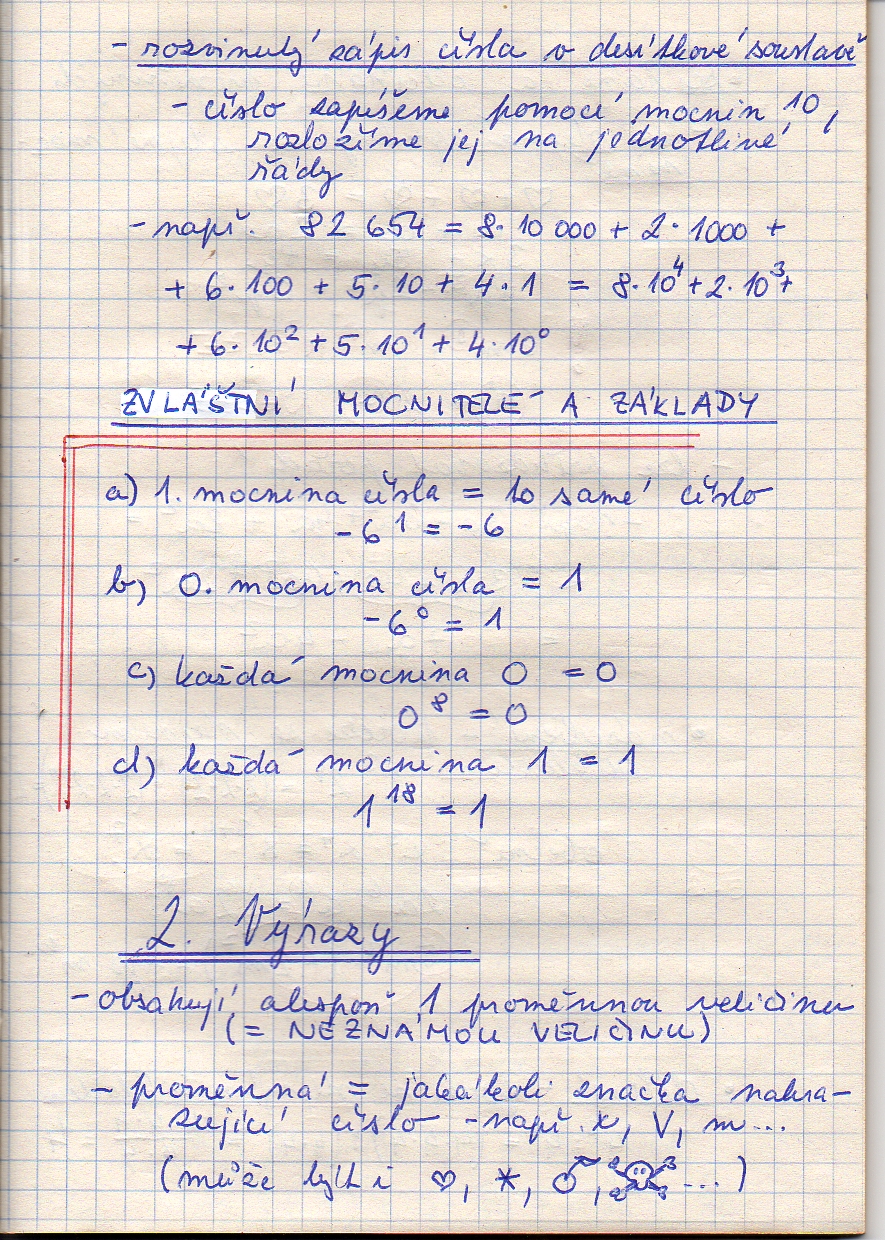 - rozvinutý zápis čísla v desítkové soustavě
- číslo zapíšeme pomocí mocnin 10,
rozložíme jej na jednotlivé
řády
- např. 82 654 = 8·10 000 + 2·1000 +
+ 6·100 + 5·10 + 4·1 = 8·10⁴ + 2·10³ +
+ 6·10² + 5·10¹ + 4·10⁰
ZVLÁŠTNÍ MOCNITELÉ A ZÁKLADY
a) 1. mocnina čísla = to samé číslo
-6¹ = -6
b) 0. mocnina čísla = 1
-6⁰ = 1
c) každá mocnina 0 = 0
0⁸ = 0
d) každá mocnina 1 = 1
1¹⁸ = 1
2. Výrazy
- obsahují alespoň 1 proměnnou veličinu
(= NEZNÁMOU VELIČINU)
- proměnná = jakákoli značka nahra-
zující číslo - např. x, V, m...
(může být i ♡, *, ♂, ☠ ... )